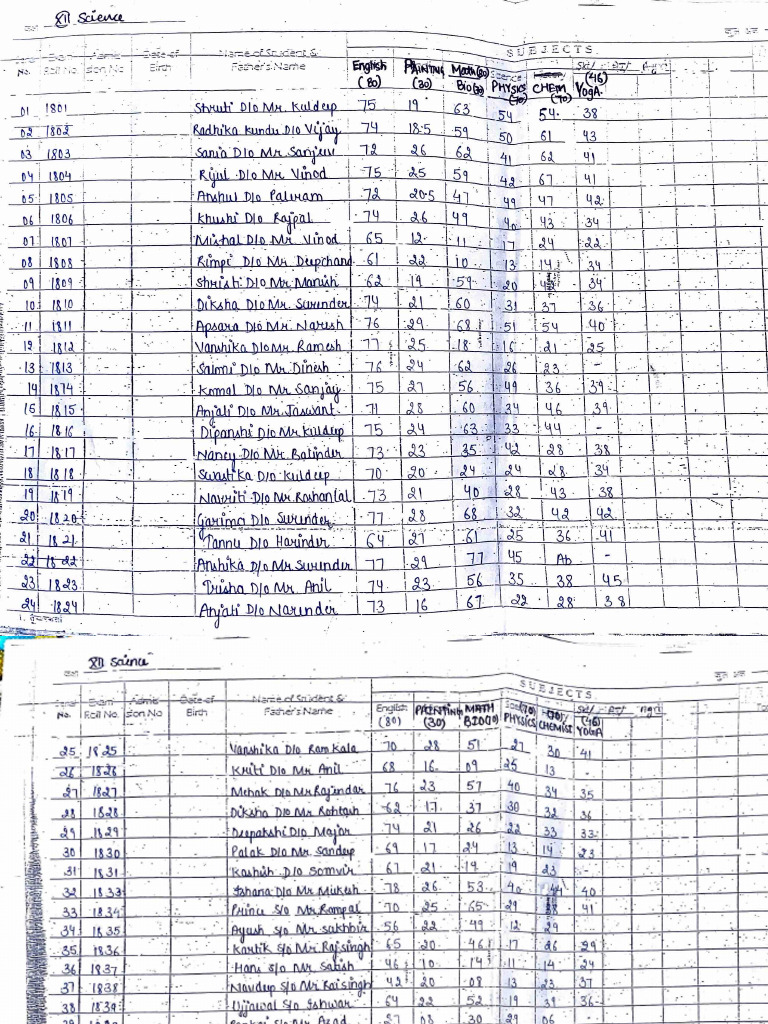 XII Science
SUBJECTS
No. Roll No. Admis- sion No. Date of Birth Name of Student & Father's Name English (80) PAINTING (30) Math(80) Bio(70) PHYSICS (70) CHEM. (70) YOGA (46)
01 1801 Shruti D/o Mr. Kuldeep 75 19 63 54 54 38
02 1802 Radhika Kundu D/o Vijay 74 18.5 59 50 61 43
03 1803 Sania D/o Mr Sanjeev 72 26 62 41 62 41
04 1804 Rijul D/o Mr. Vinod 75 25 59 42 67 41
05 1805 Anshul D/o Palvram 72 20.5 47 49 47 42
06 1806 Khushi D/o Rajpal 74 26 49 40 43 34
07 1807 Mishal D/o Mr. Vinod 65 12 11 17 24 22
08 1808 Rimpi D/o Mr Deepchand 61 22 10 13 14 34
09 1809 Shristi D/o Mr. Manish 62 19 59 20 34
10 1810 Diksha D/o Mr. Surender 74 21 60 31 37 36
11 1811 Apsara D/o Mr. Naresh 76 29 68 51 54 40
12 1812 Vanshika D/o Mr. Ramesh 77 25 18 16 21 25
13 1813 Saimi D/o Mr. Dinesh 76 24 62 26 23 -
14 1814 Komal D/o Mr. Sanjay 75 27 56 49 36 39
15 1815 Anjali D/o Mr. Jaswant 71 28 60 34 46 39
16 1816 Dipanshi D/o Mr Kuldeep 75 24 63 33 44 -
17 1817 Nancy D/o Mr. Balinder 73 23 35 42 28 38
18 1818 Swastika D/o Kuldeep 70 20 24 24 28 34
19 1819 Navriti D/o Mr. Roshanlal 73 21 40 28 43 38
20 1820 Garima D/o Surinder 77 28 68 32 42 42
21 1821 Tannu D/o Harinder 64 27 61 25 36 41
22 1822 Anshika D/o Mr Surinder 77 29 77 45 Ab -
23 1823 Trisha D/o Mr. Anil 74 23 56 35 38 45
24 1824 Anjali D/o Narender 73 16 67 22 28 38
XII Science
SUBJECTS
No. Exam Roll No. Admis- sion No. Date of Birth Name of Student & Father's Name English (80) PAINTING (30) MATH BIO(70) PHYSICS (70) CHEMIST (70) YOGA (46)
25 1825 Vanshika D/o Ram Kala 70 28 51 27 30 41
26 1826 Kriti D/o Mr. Anil 68 16 09 25 13 -
27 1827 Mehak D/o Mr Rajinder 76 23 57 40 34 35
28 1828 Diksha D/o Mr Rohtash 62 17 37 30 32 36
29 1829 Deepakshi D/o Major 74 21 26 22 33 33
30 1830 Palak D/o Mr. Sandeep 69 17 24 13 19 23
31 1831 Kashish D/o Somvir 67 21 19 19 23 -
32 1833 Ishana D/o Mr Mukesh 78 26 53 40 44 40
33 1834 Prince S/o Mr Rampal 70 25 65 29 28 41
34 1835 Ayush S/o Mr Sakhbir 56 22 49 12 29
35 1836 Kartik S/o Mr Rajsingh 65 20 46 17 26 29
36 1837 Hans S/o Mr Satish 46 10 14 11 14 24
37 1838 Navdeep S/o Mr Raisingh 42 20 08 13 23 37
38 1839 Ujjawal S/o Ishwar 64 22 52 19 39 36